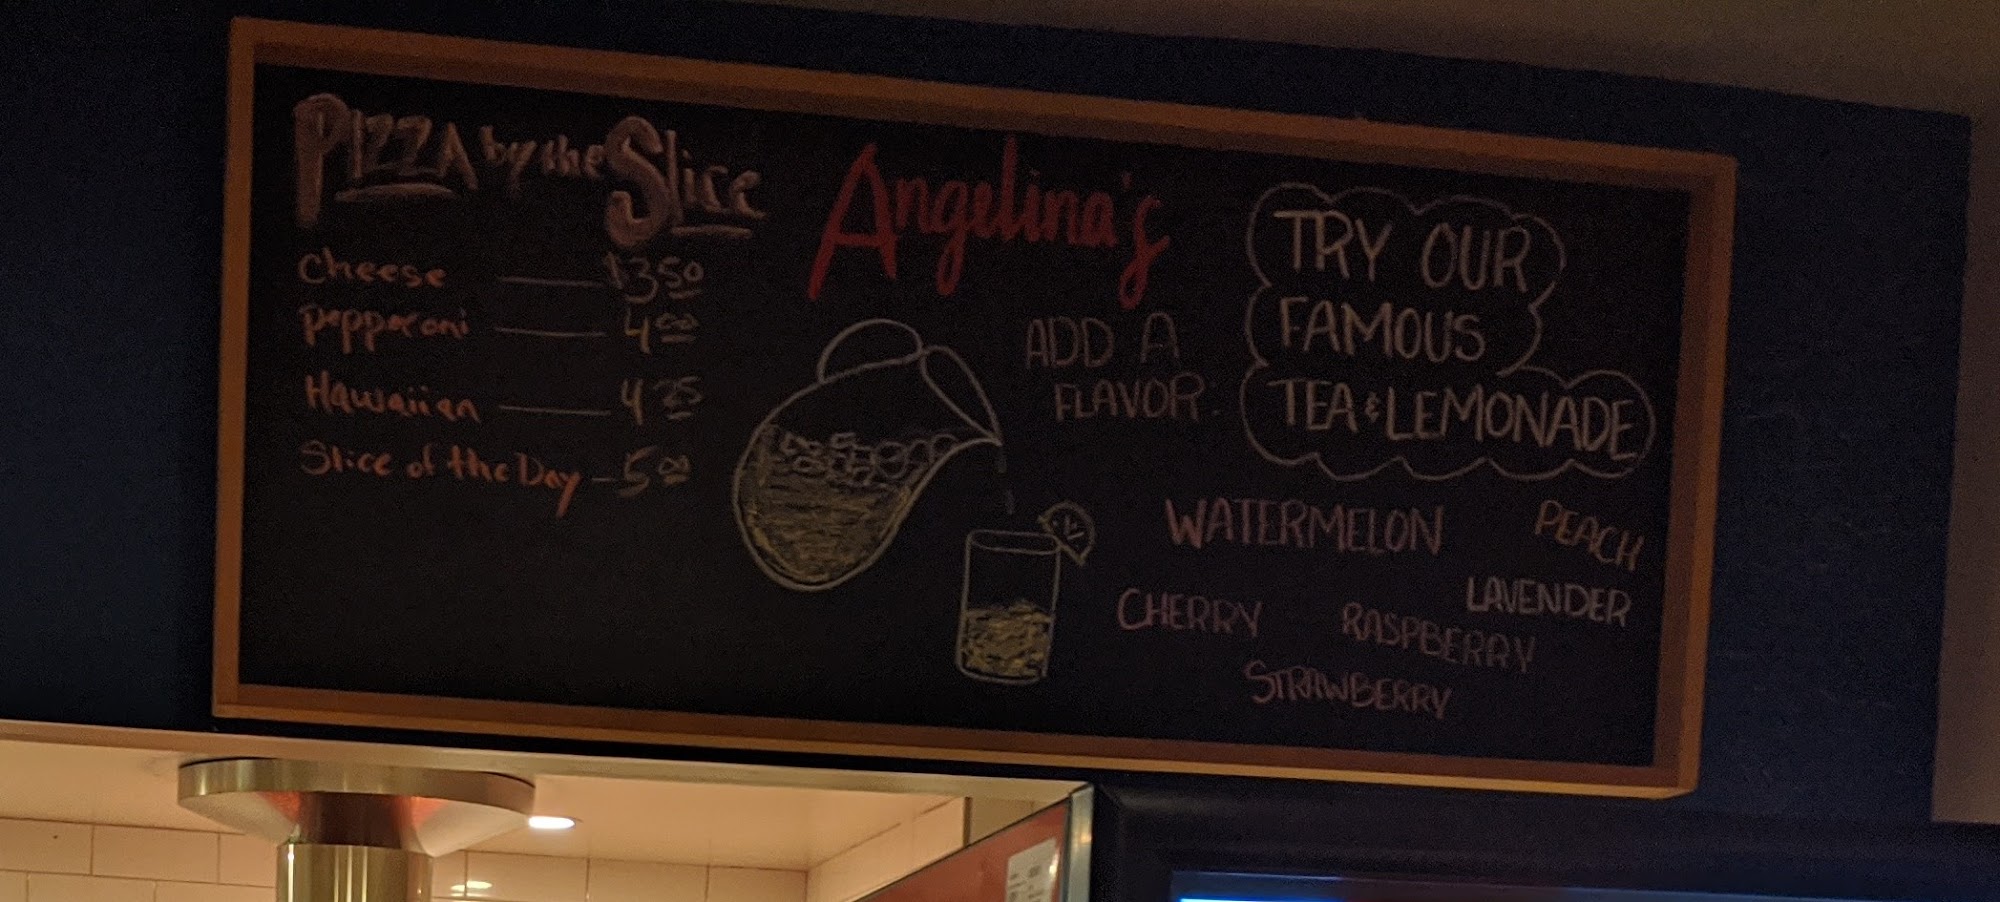 PIZZA by the Slice
Cheese $3.50
pepperoni 4.00
Hawaiian 4.25
Slice of the Day 5.00
Angelina's
ADD A
FLAVOR:
TRY OUR
FAMOUS
TEA & LEMONADE
WATERMELON
PEACH
LAVENDER
CHERRY
RASPBERRY
STRAWBERRY